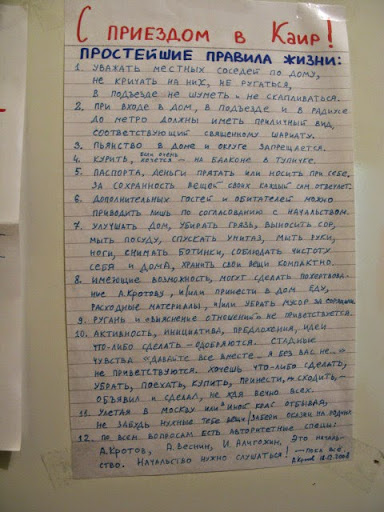 С ПРИЕЗДОМ В КАИР!
ПРОСТЕЙШИЕ ПРАВИЛА ЖИЗНИ:
1. УВАЖАТЬ МЕСТНЫХ СОСЕДЕЙ ПО ДОМУ,
НЕ КРИЧАТЬ НА НИХ, НЕ РУГАТЬСЯ,
В ПОДЪЕЗДЕ НЕ ШУМЕТЬ И НЕ СКАПЛИВАТЬСЯ.
2. ПРИ ВХОДЕ В ДОМ, В ПОДЪЕЗД И В РАДИУСЕ
ДО МЕТРО ДОЛЖНЫ ИМЕТЬ ПРИЛИЧНЫЙ ВИД,
СООТВЕТСТВУЮЩИЙ СВЯЩЕННОМУ ШАРИАТУ.
3. ПЬЯНСТВО В ДОМЕ И ОКРУГЕ ЗАПРЕЩАЕТСЯ.
4. КУРИТЬ, ЕСЛИ ОЧЕНЬ
ХОЧЕТСЯ – НА БАЛКОНЕ В ТУПИЧКЕ.
5. ПАСПОРТА, ДЕНЬГИ ПРЯТАТЬ ИЛИ НОСИТЬ ПРИ СЕБЕ.
ЗА СОХРАННОСТЬ ВЕЩЕЙ СВОИХ КАЖДЫЙ САМ ОТВЕЧАЕТ.
6. ДОПОЛНИТЕЛЬНЫХ ГОСТЕЙ И ОБИТАТЕЛЕЙ МОЖНО
ПРИВОДИТЬ ЛИШЬ ПО СОГЛАСОВАНИЮ С НАЧАЛЬСТВОМ.
7. УЛУЧШАТЬ ДОМ, УБИРАТЬ ГРЯЗЬ, ВЫНОСИТЬ СОР,
МЫТЬ ПОСУДУ, СПУСКАТЬ УНИТАЗ, МЫТЬ РУКИ,
НОГИ, СНИМАТЬ БОТИНКИ, СОБЛЮДАТЬ ЧИСТОТУ
СЕБЯ И ДОМА, ХРАНИТЬ СВОИ ВЕЩИ КОМПАКТНО.
8. ИМЕЮЩИЕ ВОЗМОЖНОСТЬ, МОГУТ СДЕЛАТЬ ПОЖЕРТВОВАНИЕ
А.КРОТОВУ, И/ИЛИ ПРИНЕСТИ В ДОМ ЕДУ,
РАСХОДНЫЕ МАТЕРИАЛЫ, И/ИЛИ УБРАТЬ МУСОР ЗА
9. РУГАНЬ И «ВЫЯСНЕНЬЕ ОТНОШЕНИЙ» НЕ ПРИВЕТСТВУЕТСЯ.
10. АКТИВНОСТЬ, ИНИЦИАТИВА, ПРЕДЛОЖЕНИЯ, ИДЕИ
ЧТО-ЛИБО СДЕЛАТЬ – ОДОБРЯЮТСЯ. СТАДНЫЕ
ЧУВСТВА «ДАВАЙТЕ ВСЕ ВМЕСТЕ... Я БЕЗ ВАС НЕ...»
НЕ ПРИВЕТСТВУЮТСЯ. ХОЧЕШЬ ЧТО-ЛИБО СДЕЛАТЬ,
УБРАТЬ, ПОЕХАТЬ, КУПИТЬ, ПРИНЕСТИ, СХОДИТЬ, –
ОБЪЯВИЛ И СДЕЛАЛ, НЕ ЖДЯ ВЕЧНО ВСЕХ.
11. УЛЕТАЯ В МОСКВУ ИЛИ В ИНОЙ КРАЕ ОТБЫВАЯ,
НЕ ЗАБУДЬ НУЖНЫЕ ТЕБЕ ВЕЩИ
12. ПО ВСЕМ ВОПРОСАМ ЕСТЬ АВТОРИТЕТНЫЕ СПЕЦЫ:
А.КРОТОВ, Д.ВЕСНИН, И. АЛИГОЖИН. ЭТО НАЧАЛЬ-
СТВО. НАЧАЛЬСТВО НУЖНО СЛУШАТЬСЯ! – ПОКА ВСЁ.